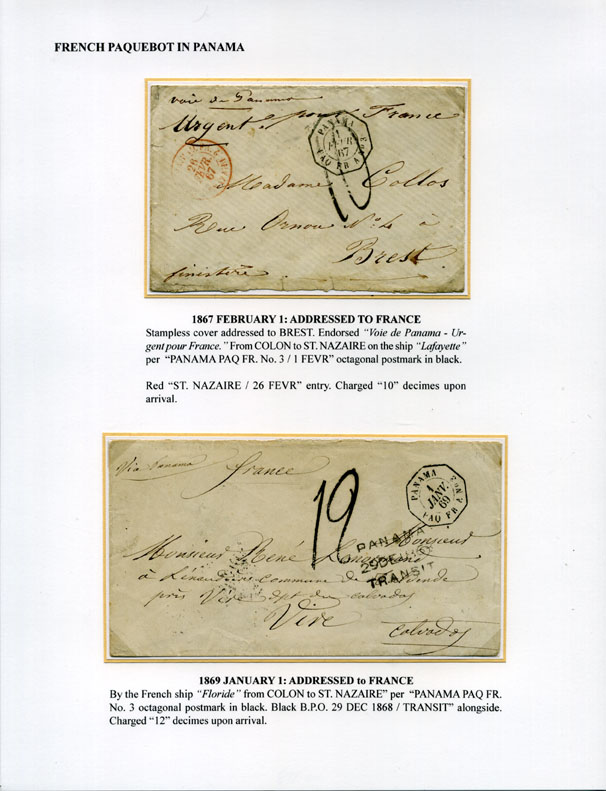 FRENCH PAQUEBOT IN PANAMA
voie de Panama
Urgent pour France
PANAMA
1
FEVR
67
PAQ FR
26
FEVR
67
10
Madame Collos
Rue Ornou No 4 à
Brest
finistère
1867 FEBRUARY 1: ADDRESSED TO FRANCE
Stampless cover addressed to BREST. Endorsed "Voie de Panama - Ur-
gent pour France." From COLON to ST. NAZAIRE on the ship "Lafayette"
per "PANAMA PAQ FR. No. 3 / 1 FEVR" octagonal postmark in black.
Red "ST. NAZAIRE / 26 FEVR" entry. Charged "10" decimes upon
arrival.
via panama
france
12
PANAMA
1
JANV.
69
PAQ FR
PANAMA
29DE
TRANSIT
Monsieur
Monsieur René
à Commune de
près Vire dpt du calvados
Vire
calvados
1869 JANUARY 1: ADDRESSED to FRANCE
By the French ship "Floride" from COLON to ST. NAZAIRE" per "PANAMA PAQ FR.
No. 3 octagonal postmark in black. Black B.P.O. 29 DEC 1868 / TRANSIT" alongside.
Charged "12" decimes upon arrival.